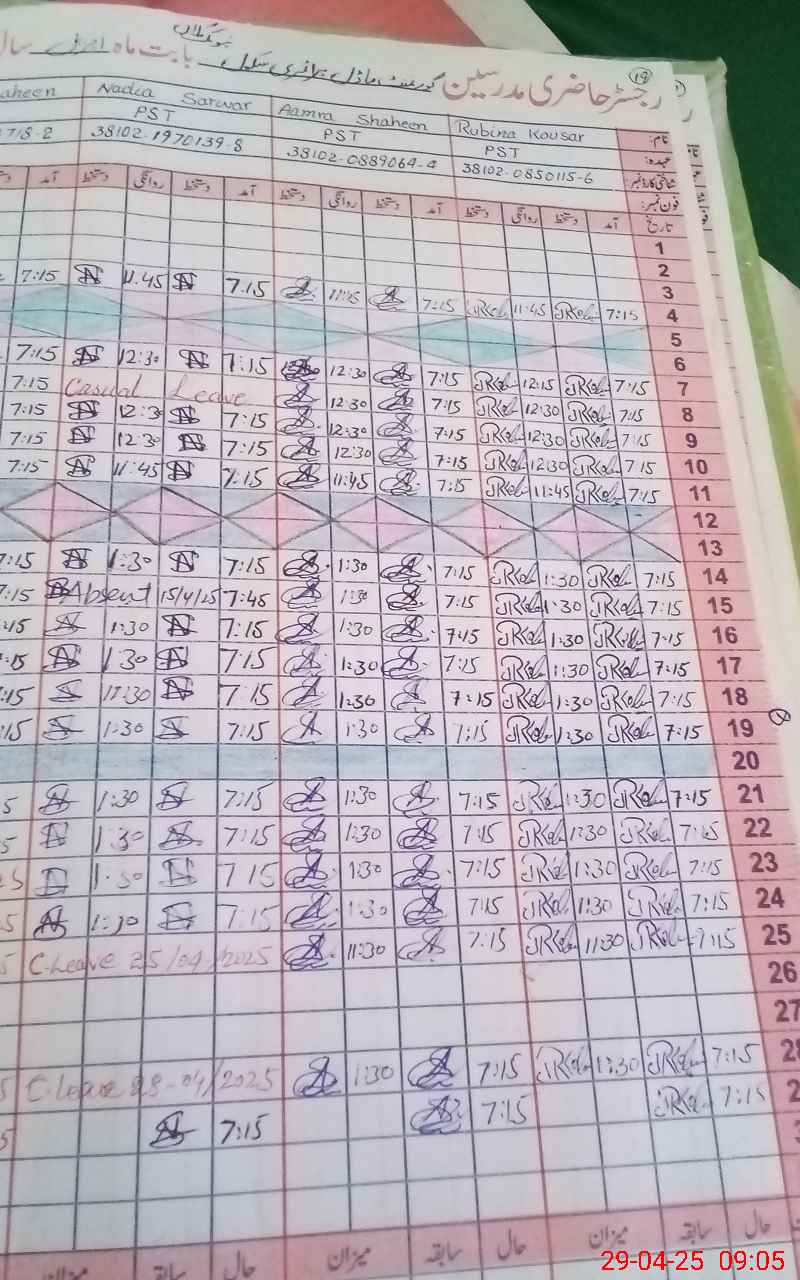 رجسٹر حاضری مدرسین گورنمنٹ ماڈل پرائمری سکول بابت ماہ اپریل سال
19
نام: Rubina Kousar Aamra Shaheen Nadia Sarwar aheen
عہدہ: PST PST PST
شناختی کارڈ نمبر: 38102-0850115-6 38102-0889064-4 38102-1970139-8 718-2
فون نمبر:
تاریخ آمد دستخط روانگی دستخط آمد دستخط روانگی دستخط آمد دستخط روانگی دستخط آمد
1
2
3
4 7:15 11:45 7:15 11:45 7:15 11:45 7:15
5
6
7 7:15 12:15 7:15 12:30 7:15 12:30 7:15
8 7:15 12:30 7:15 12:30 Casual Leave 7:15
9 7:15 12:30 7:15 12:30 7:15 12:30 7:15
10 7:15 12:30 7:15 12:30 7:15 12:30 7:15
11 7:15 11:45 7:15 11:45 7:15 11:45 7:15
12
13
14 7:15 1:30 7:15 1:30 7:15 1:30 7:15
15 7:15 1:30 7:15 1:30 7:45 Absent 15/4/25 7:15
16 7:15 1:30 7:15 1:30 7:15 1:30
17 7:15 1:30 7:15 1:30 7:15 1:30
18 7:15 1:30 7:15 1:30 7:15
19 7:15 1:30 7:15 1:30 7:15 1:30
20
21 7:15 1:30 7:15 1:30 7:15 1:30
22 7:15 1:30 7:15 1:30 7:15 1:30
23 7:15 1:30 7:15 1:30 7:15 1:30
24 7:15 1:30 7:15 1:30 7:15 1:30
25 7:15 11:30 7:15 11:30 C.Leave 25/04/2025
26
27
28 7:15 1:30 7:15 1:30 C.leave 28-04/2025
7:15 7:15 7:15
حال سابقہ میزان حال سابقہ میزان حال سابقہ میزان
29-04-25 09:05